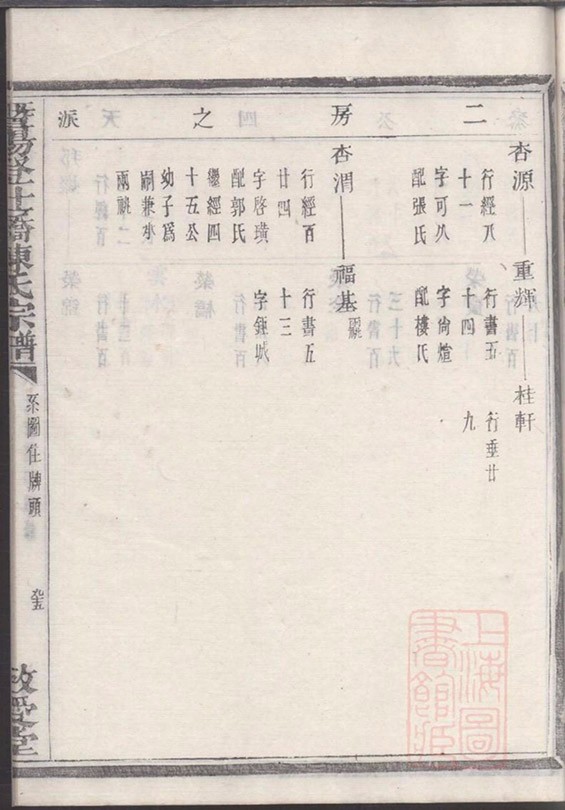 二房之派
杏源
重輝
桂軒
行經八
十一
字可久
配張氏
行書五
十四
字尚煊
配樓氏
行垂廿
九
杏渭
福基
行經百
廿四
字啓璜
配郭氏
繼經四
十五公
幼子爲
嗣兼承
兩祧
行書五
十三
字鉅城
陳氏宗譜
系圖住牌頭
敬愛堂
上海圖
書館藏